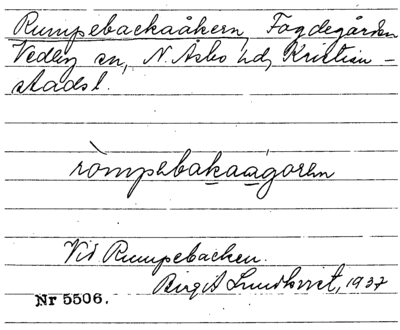 Rumpebackaåkern, Fogdegården
Vedby sn, N. Åsbo hd, Kristian-
stads l.
ròmpebakaágoren
Vid Rumpebacken.
Birgit Lundkvist, 1937
Nr 5506.